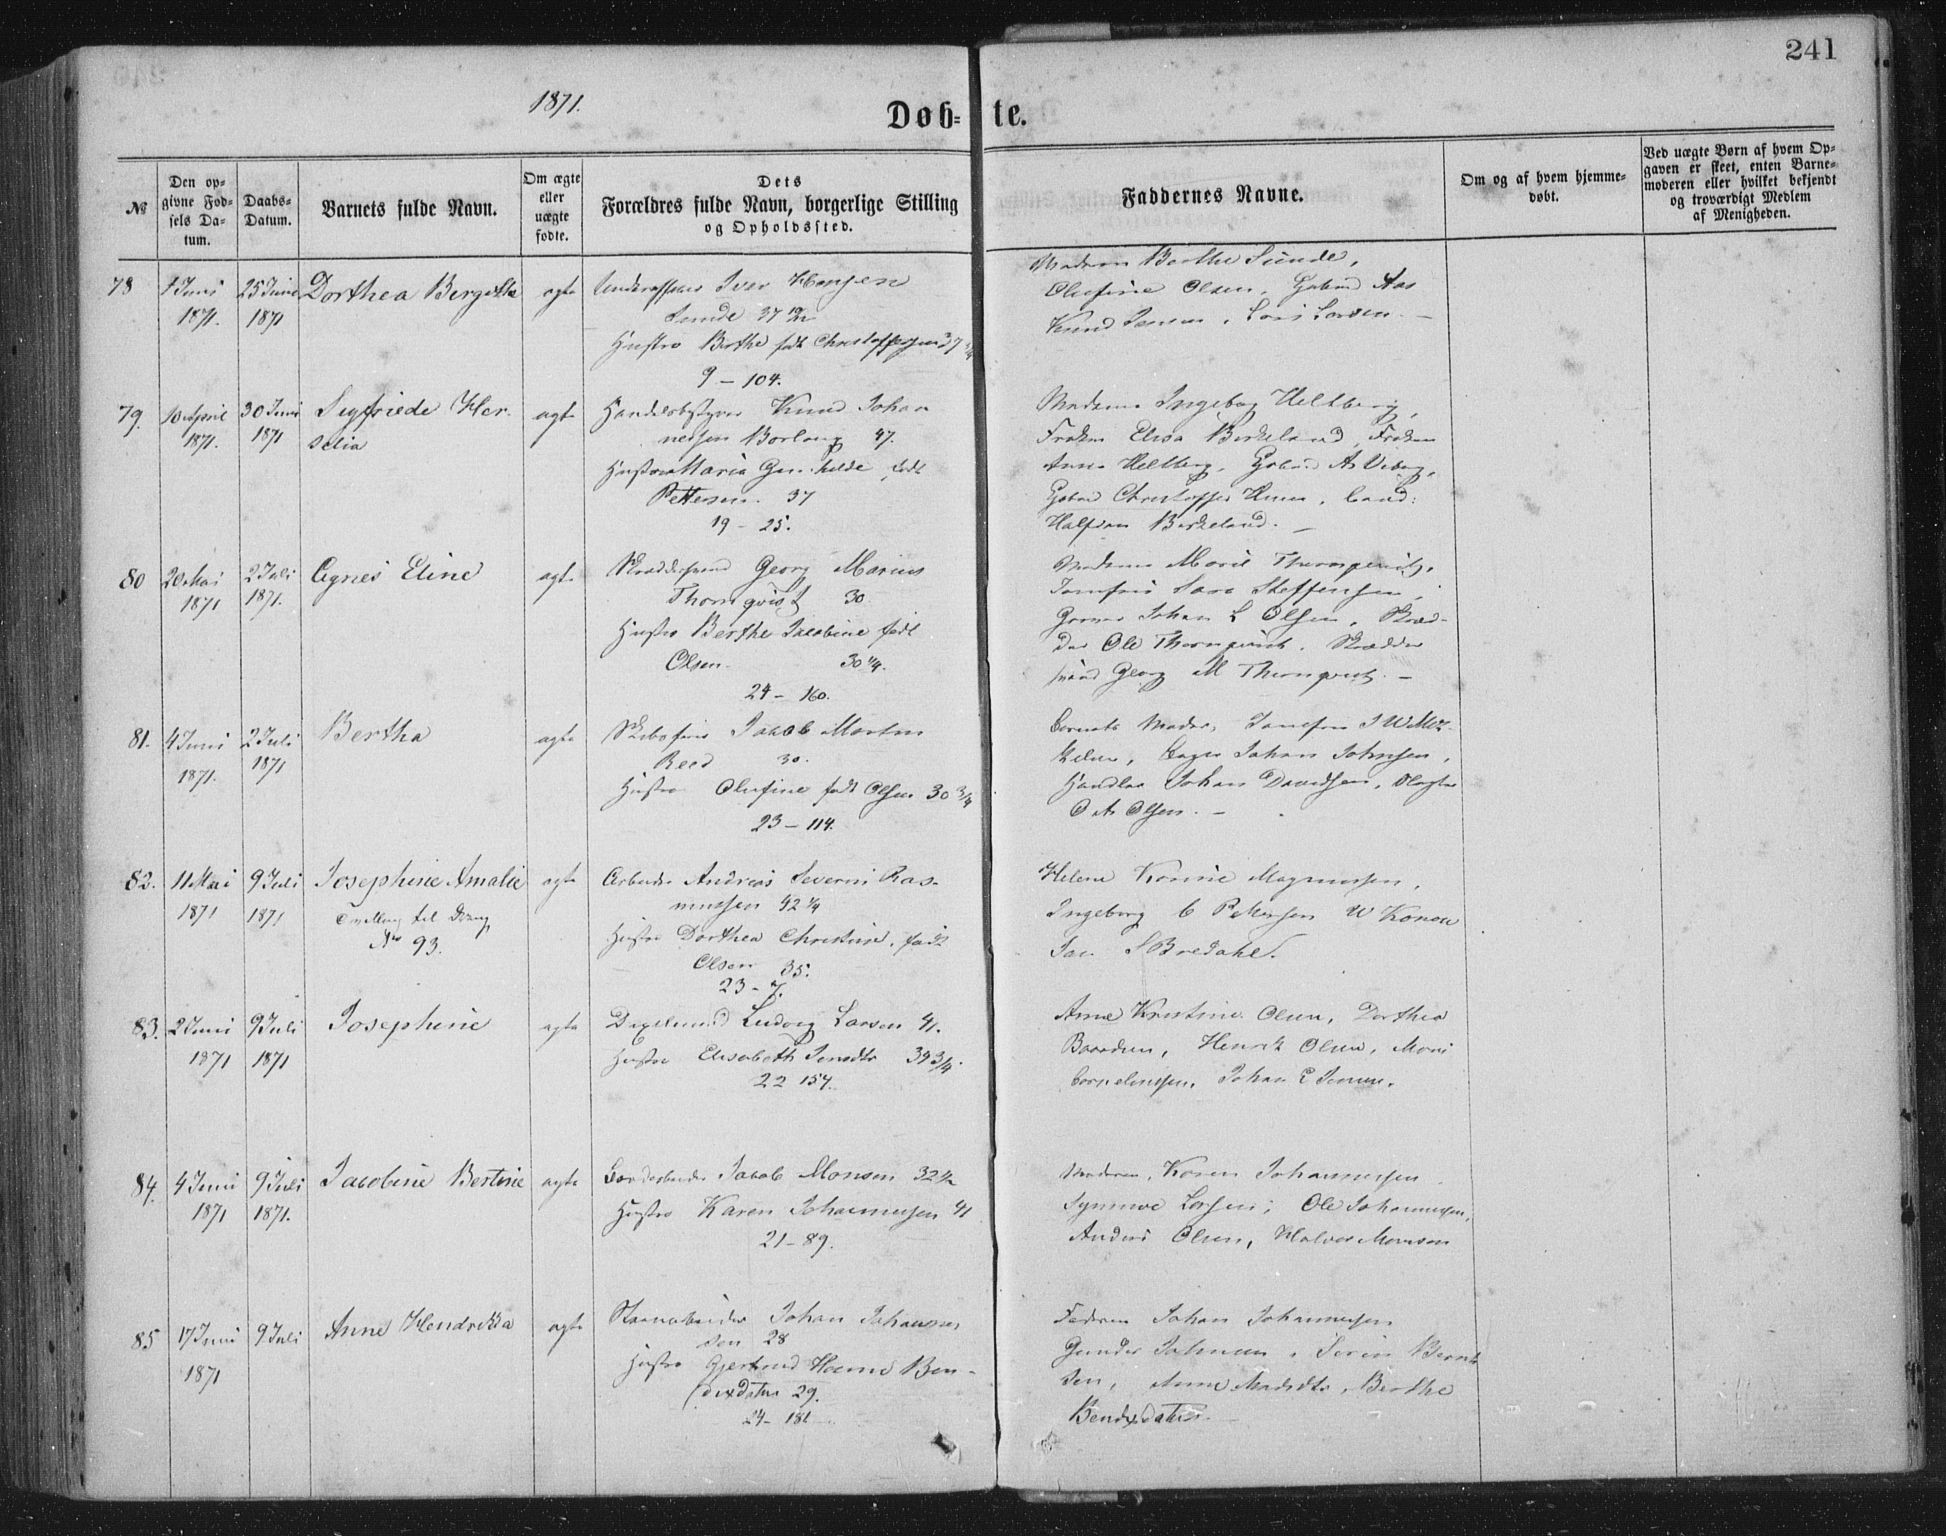 241
1871.
Døb= te.
№
Den op=
givne Fød=
sels Da=
tum.
Daabs=
Datum.
Barnets fulde Navn.
Om ægte
eller
uægte
fødte.
Dets
Forældres fulde Navn, borgerlige Stilling
og Opholdssted.
Faddernes Navne.
Om og af hvem hjemme=
døbt.
Ved uægte Børn af hvem Op=
gaven er skeet, enten Barne=
moderen eller hvilket bekjendt
og troværdigt Medlem
af Menigheden.
78
1 Juni
1871.
25 Juni
1871
Dorthea Bergitta
ægte
Iver Hansen
Sunde 37
Hustro Berthe født Christophersen 37
9 – 104.
Madam Berthe Sunde,
Olufine Olsen, Aas
Knud Jensen, Lars Larsen. –
79.
10 April
1871.
30 Juni
1871
Sigfriede Her-
selia
ægte
Handelsbestyrer Knud Johan
nessen Borlaug 47.
Hustro Maria Gunhilde, født
Pettersen. 37
19 – 25.
Madame Ingeborg Heltberg,
Frøken Elisa Birkeland, Frøken
Anna Heltberg,
Christopher Cand:
Halfdan Birkeland. –
80
20 Mai
1871
2 Juli
1871.
Agnes Eline
ægte
Skræddersvend Georg Marius
Thornqvist 30
Hustro Berthe Jacobine født
Olsen. 30 1/4.
24 – 160.
Madam Marie Thornqvist,
Jomfru Sara Steffensen,
Johan L Olsen, Skræd-
der Ole Thornqvist, Skrædder
svend Georg M Thornqvist. –
81.
4 Juni
1871.
2 Juli
1871
Bertha
ægte
Jacob Morten
Reed 30.
Hustro Olufine født Olsen 30 3/4
23 – 114.
Barnets Moder, Jomfru
Johan Johnsen,
Handlar Johan Davidsen,
O A Olsen. –
82.
11 Mai
1871
9 Juli
1871
Josephine Amalie
Tvilling til Dreng
No 93.
ægte
Arbeider Andreas Severin Ras-
mussen 42 1/4
Hustro Dorthea Christine, født
Olsen 35.
23 – 7.
Helene Magnussen,
Ingeborg C Pettersen W Konow
Jan S Bredahl.
83.
2 Juni
1871
9 Juli
1871
Josephine
ægte
Ludvig Larsen 41.
Hustro Elisabeth Jensdtr 39 3/4.
22 157.
Anne Kristine Olsen, Dorthea
Baardsen, Henrik Olsen,
Corneliussen, Johan E Jensen.
84.
4 Juni
1871
9 Juli
1871.
Jacobine Bertine
ægte
Jacob Monsen 32 1/2
Hustro Karen Johannesen 41
21 – 89.
Moderen, Karen Johannesen
Synnøve Larsen, Ole Johannesen,
Anders Olsen, Halvor Monsen
85
17 Juni
1871
9 Juli
Anne Hendrikka
ægte
Johan Johannes
sen 28
Hustro Gjertrud Hanne Ben-
dixdatter 29.
24 – 181
Faderen Johan Johannesen
Gunder Johnsen, Søren Bernt
sen, Anne Madsdtr, Berthe
Bendixdatter.